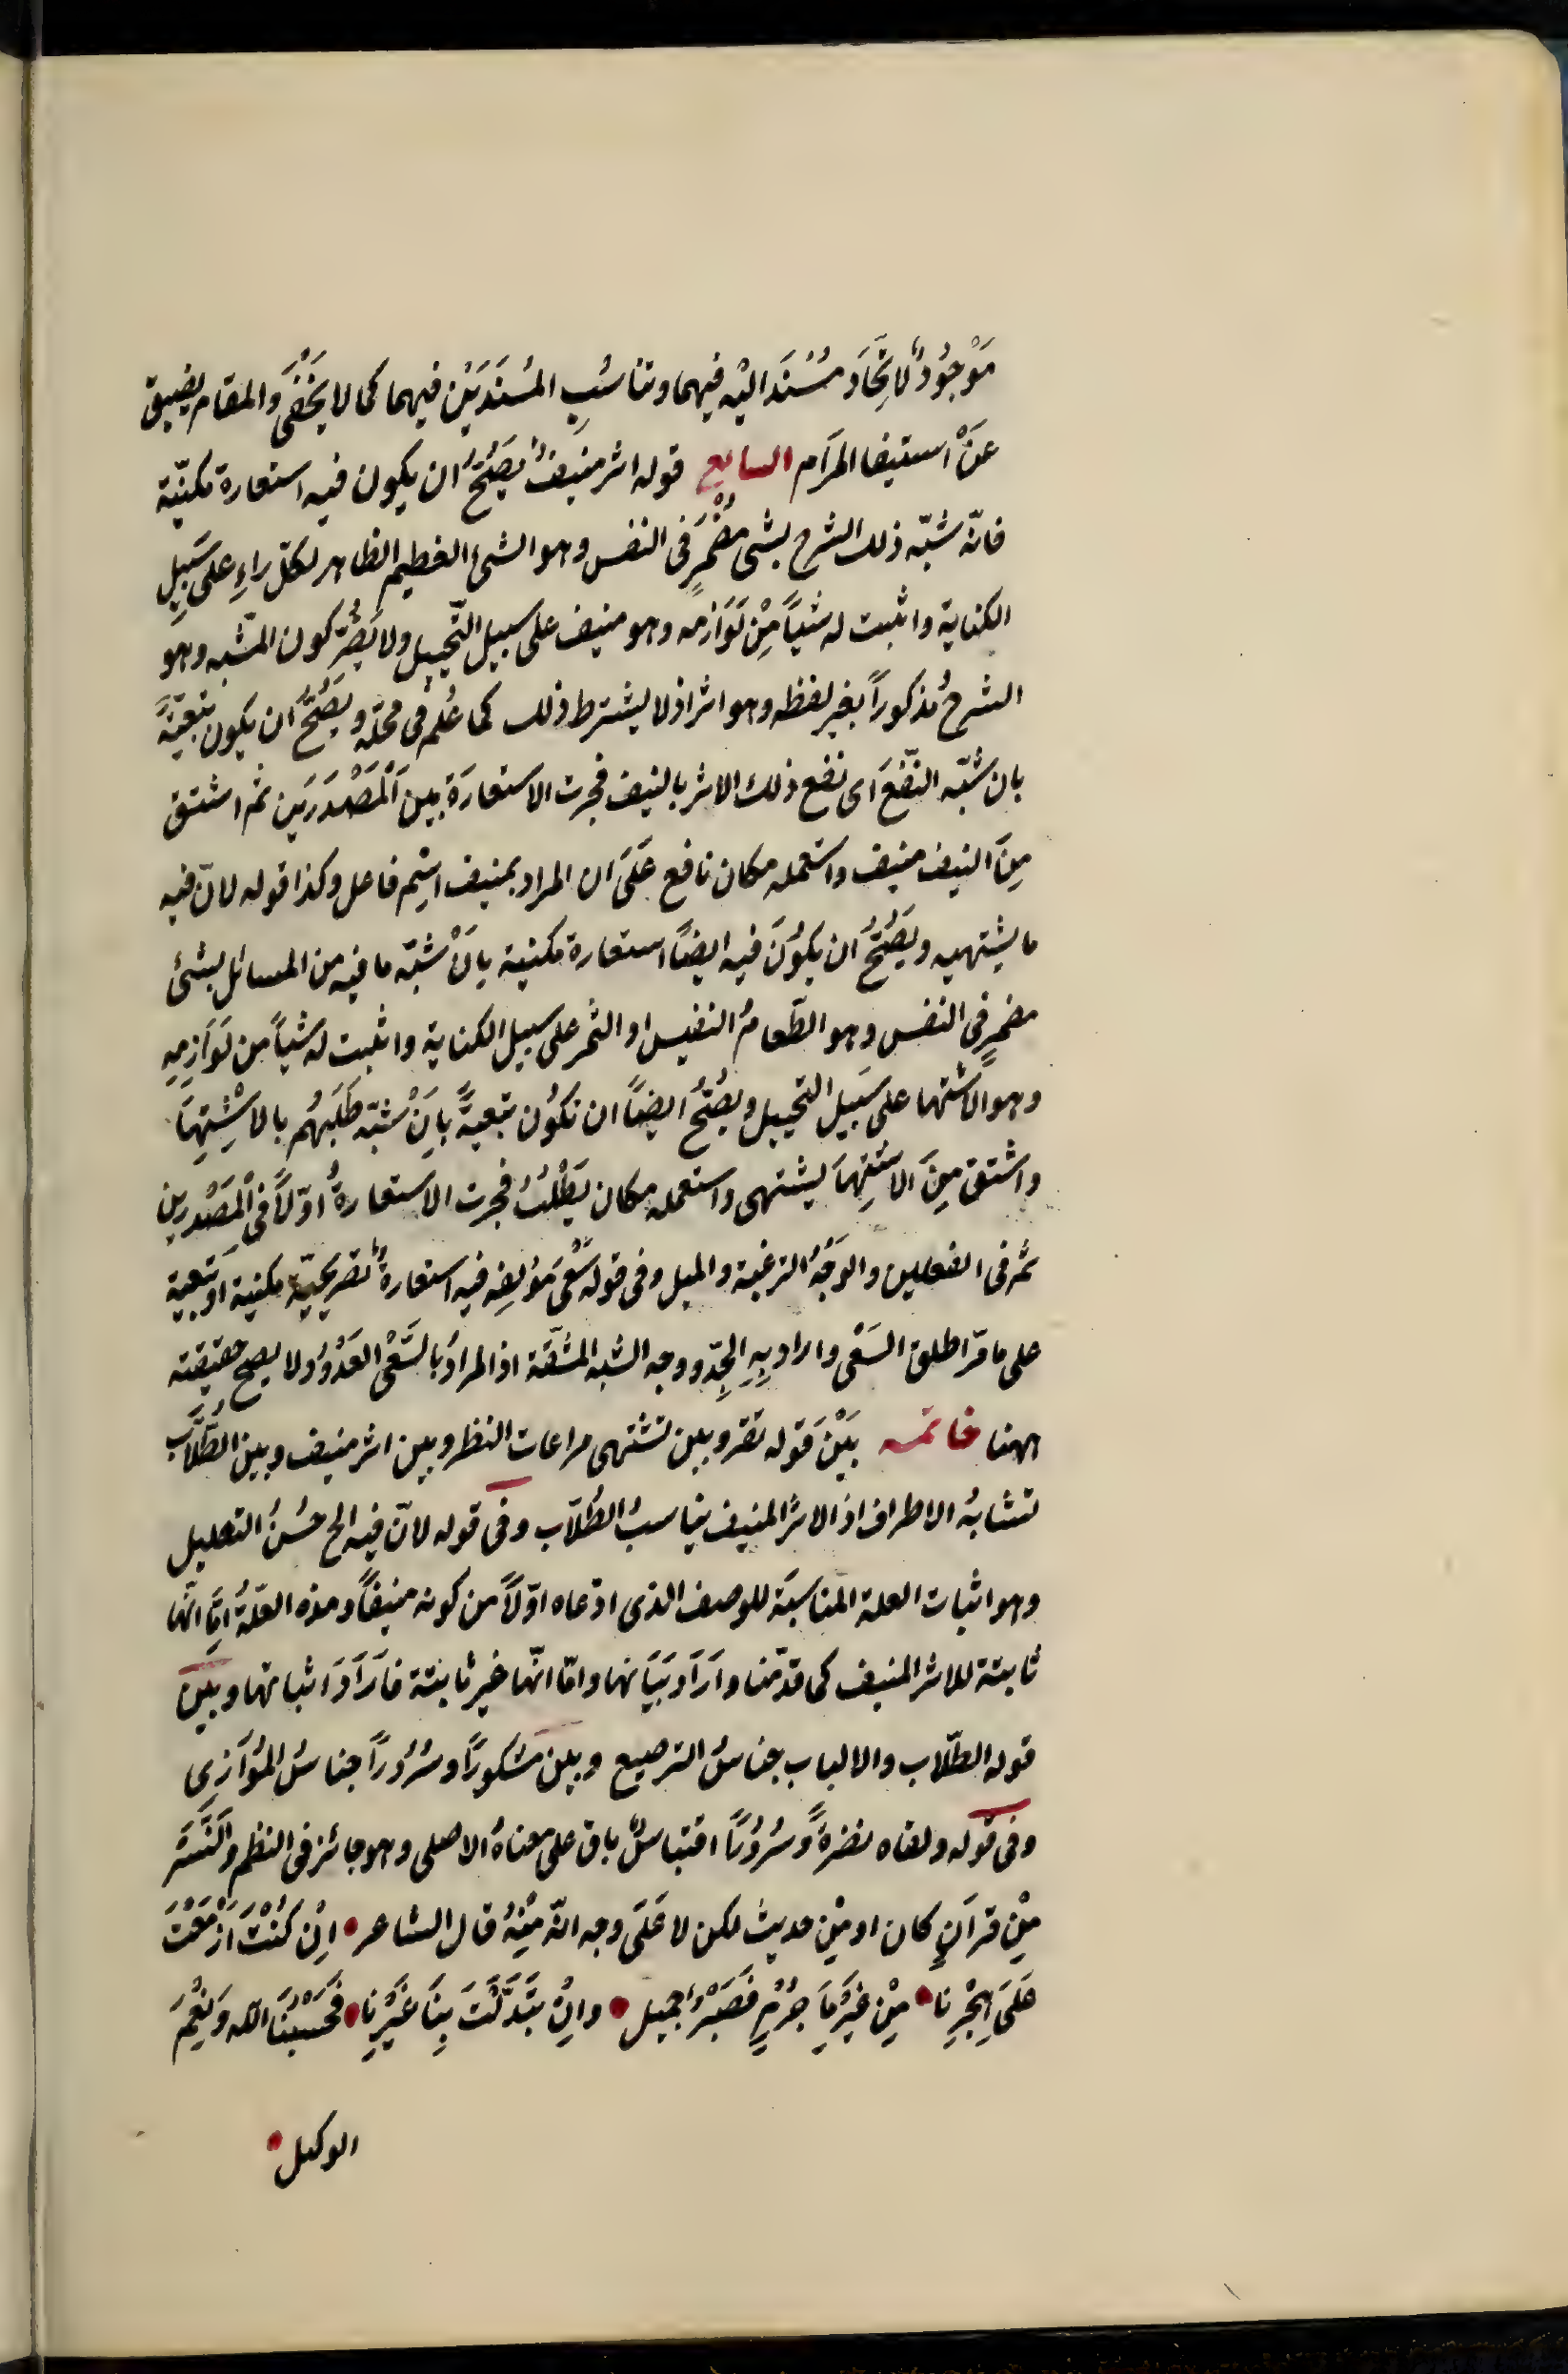 مَوْجُودٌ لاتِّحَادِ مُسْنَدَ اليْه فيهما وتناسُبِ المُسْنَدَيْن فيهما كما لا يَخْفَى وَالمقام يضيق
عَنْ استيفا المرَام السابع قوله اثر منيفٌ يَصِحُّ ان يكون فيه استعارة مكنيّة
فانّه شبّه ذلك الشرح بشئ مُضْمَرٍ فى النفس وهو الشئ العظيم الظاهر لكلّ راءٍ على سَبيلِ
الكناية واثبت له شَيْاً مِنْ لَوَازمه وهو منيف على سبيل التّخييل ولا يَضُرّ كون المشّبه وهو
الشرحُ مذكوراً بغير لفظه وهو اثر اذ لا يشترط ذلك كما عُلم فى محلّه ويَصُحُّ ان يكون تبَعِيَّةً
بان شبّه النّفْعَ اى نفع ذلك الاثر بالنيف فجرت الاستعارَة بين اَلْمَصْدَرَيَن ثم اشتق
مِنَ النيف منيف واستعمله مكان نافع عَلَىَ ان المراد بمنيف اسْم فاعل وكذا قوله لانّ فيه
ما يشتهيه ويَصُحُّ ان يكُوَنَ فيه ايضاً استعارة مكنيّة بانْ شبّه ما فيه من المسائل بشئ
مضمرٍ فى النفس وهو الطّعامُ النفيس او الثمر على سبيل الكناية واثبت له شَيْاً من لَوَازِمِهِ
وهو الاشتها على سَبيل التخييل ويصُحُّ ايضاً ان تكُون تبعيةً بانْ شبّه طَلَبَهُم بالاشْتِهَا
واشتق مِنَ الاشتِهَا يشتهى واستعمله مكان يَطْلُبُ فجرت الاستعارةُ اوّلاً فى اَلمَصْدرين
ثم فى الفعلين والوَجْهُ الرغبة والميل وفى قوله سَعْىَ مؤلِفه فيه استعارةٌ تصريحيّة مكنية او تبعية
على ما مرّ اطلق السَعْى واراد بِهِ الجِدّ ووجه الشبه المشَقّة اذ المرادُ بالسَّعْى العَدْوُ ولا يصح حقيقته
ههنا خاتمه بَيْنَ قوله تقر وبين تشتهى مراعات النظر وبين اثر منيف وبين الطُّلّاَبِ
تشابُهُ الاطراف اذ الاثر المنيف يناسبُ الطُلّاب وفى قوله لانّ فيه الخ حُسْنُ التعليل
وهو اثبات العلة المناسبَة للوصف الذى ادّعاه اوّلاً من كونه منيفاً وهذه العلّةُ امِّا انّها
ثابتة للاثر المنيف كما قدّمنا واَرَاَدَ بَيَانها وامّا انّها غير ثابتة فاَرَاَدَ اثباتها وبيْنَ
قوله الطلّاب والالباب جناسُ الترصيع وبين مشكوراً وسُرُوراً جناسُ المُوَازِى
وفى قوله ولقاه نضرةً وسُرُوراً اقتباسٌ باق على معناهُ الاصلى وهو جائز فى النظم والنَّثر
مِنْ قراَنٍ كان او مِنْ حديث لكن لا عَلَى وجه انّه مِنْهُ قال الشاعر • اِنْ كُنْتَ اَزْمَعْتَ
عَلَى هِجْرِنا • مِنْ غَيْرِ مَا جُرْمٍ فصَبْرٌ جميل • واِنْ تَبَدَّلْتَ بِنَا غَيْرنا • فَحَسْبُنَا الله وَنِعْمَ
الوكيل •